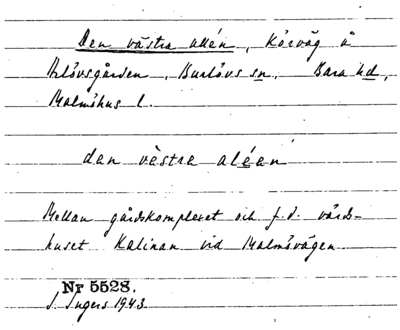 Den västra allén, körväg å
Arlövsgården, Burlövs sn, Bara hd,
Malmöhus l.
dan västra aléan
Mellan gårdskomplexet och f.d. värds-
huset Kalinan vid Malmövägen.
Nr 5528.
I. Ingers 1943.